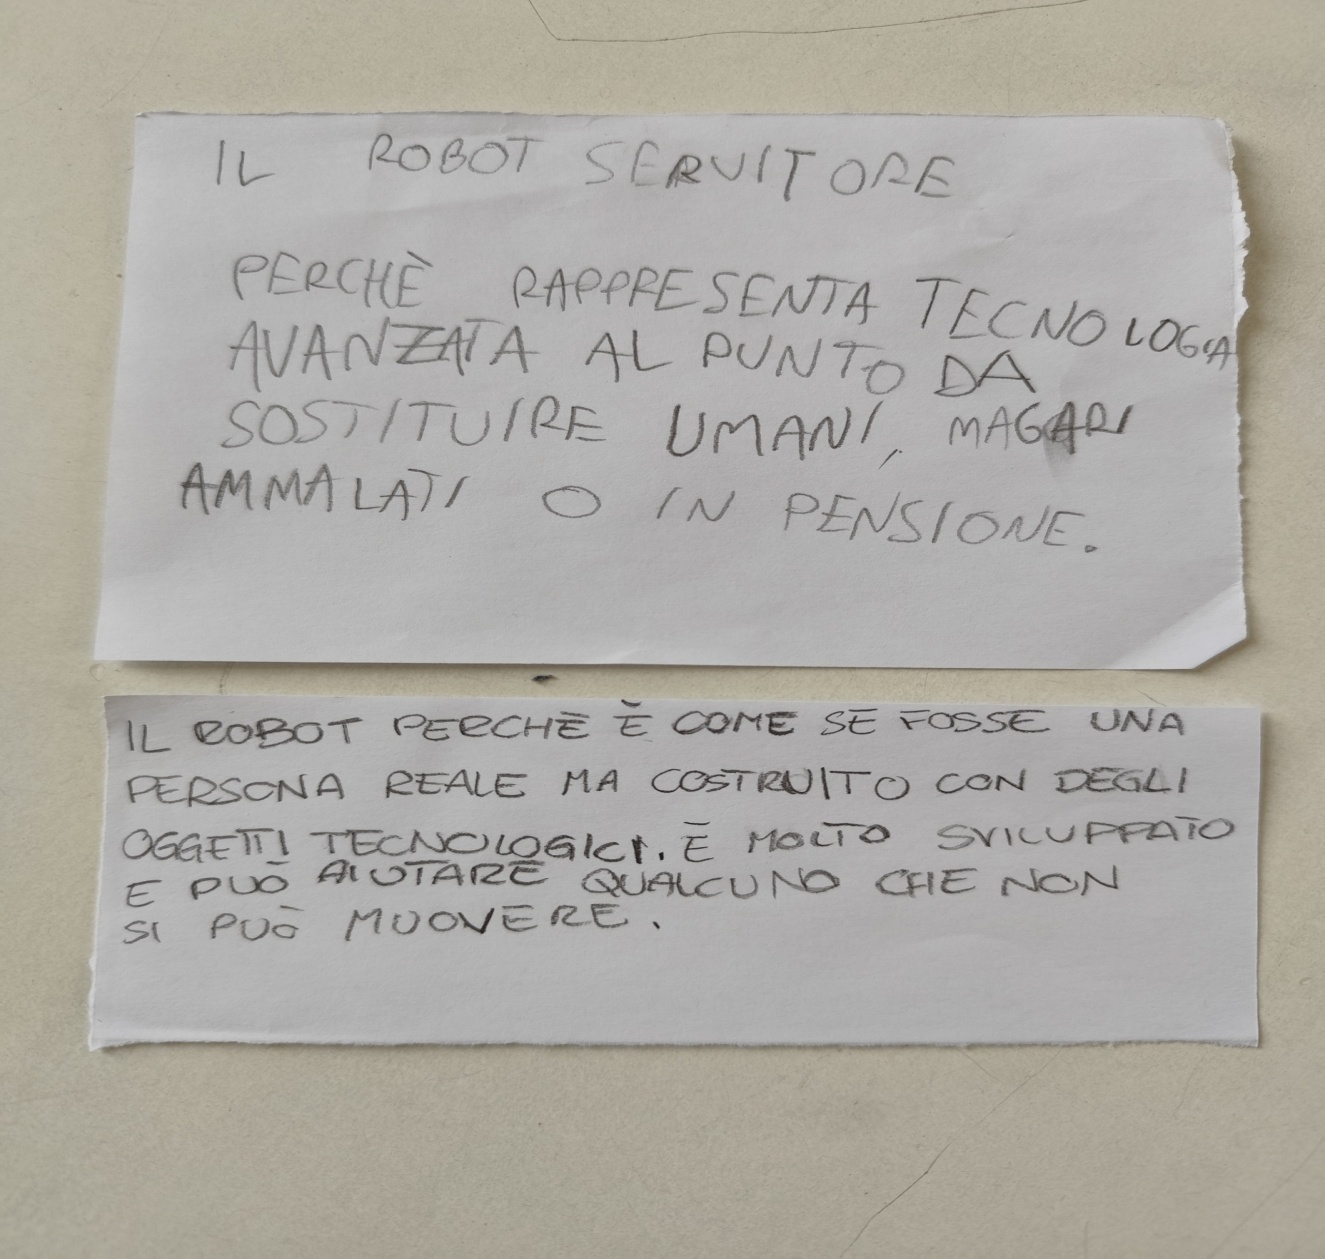 IL ROBOT SERVITORE
PERCHÈ RAPPRESENTA TECNOLOGIA
AVANZATA AL PUNTO DA
SOSTITUIRE UMANI, MAGARI
AMMALATI O IN PENSIONE.
IL ROBOT PERCHÈ È COME SE FOSSE UNA
PERSONA REALE MA COSTRUITO CON DEGLI
OGGETTI TECNOLOGICI. È MOLTO SVILUPPATO
E PUÒ AIUTARE QUALCUNO CHE NON
SI PUÒ MUOVERE.